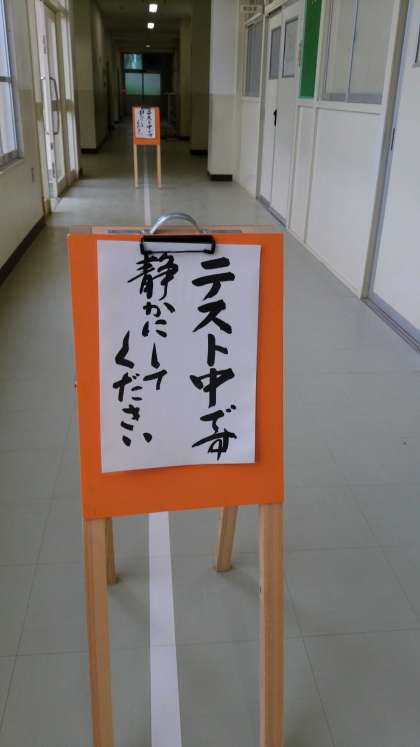 テスト中です
静かにして
ください